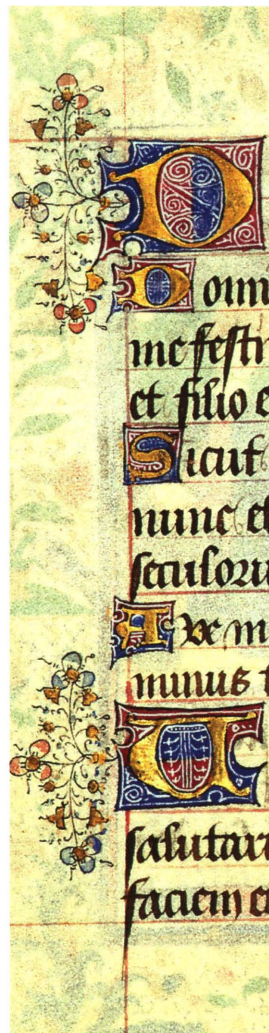 D
Domi
me festi
et filio e
Sicut
nunc et
seculoru
Ave m
minus t
V
salutari
faciem e